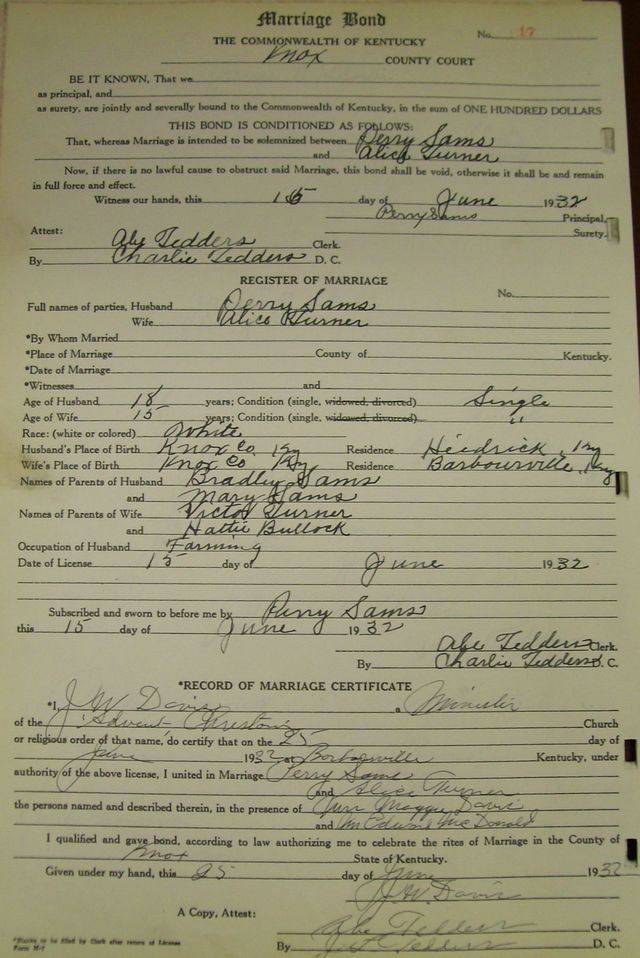 Marriage Bond
No. 17
THE COMMONWEALTH OF KENTUCKY
Knox COUNTY COURT
BE IT KNOWN, That we
as principal, and
as surety, are jointly and severally bound to the Commonwealth of Kentucky, in the sum of ONE HUNDRED DOLLARS
THIS BOND IS CONDITIONED AS FOLLOWS:
That, whereas Marriage is intended to be solemnized between Perry Sams
and Alice Turner
Now, if there is no lawful cause to obstruct said Marriage, this bond shall be void, otherwise it shall be and remain
in full force and effect.
Witness our hands, this 15 day of June 1932
Perry Sams Principal,
Surety.
Attest:
Abe Tedders Clerk.
By Charlie Tedders D. C.
REGISTER OF MARRIAGE
No.
Full names of parties, Husband Perry Sams
Wife Alice Turner
*By Whom Married
*Place of Marriage County of Kentucky.
*Date of Marriage
*Witnesses and
Age of Husband 18 years; Condition (single, widowed, divorced) Single
Age of Wife 15 years; Condition (single, widowed, divorced) "
Race: (white or colored) White
Husband's Place of Birth Knox Co. Ky Residence Heidrick, Ky
Wife's Place of Birth Knox Co. Ky Residence Barbourville, Ky
Names of Parents of Husband Bradly Sams
and Mary Sams
Names of Parents of Wife Victor Turner
and Hattie Bullock
Occupation of Husband Farming
Date of License 15 day of June 1932
Subscribed and sworn to before me by Perry Sams
this 15 day of June 1932
Abe Tedders Clerk.
By Charlie Tedders D. C.
*RECORD OF MARRIAGE CERTIFICATE
*I, J W Davis a Minister
of the Advent Christain Church
or religious order of that name, do certify that on the 25 day of
June 1932 at Barbourville Kentucky, under
authority of the above license, I united in Marriage Perry Sams
and Alice Turner
the persons named and described therein, in the presence of Maggie Davis
and McDonald
I qualified and gave bond, according to law authorizing me to celebrate the rites of Marriage in the County of
Knox State of Kentucky.
Given under my hand, this 25 day of June 1932
J. W. Davis
A Copy, Attest:
Abe Tedders Clerk.
By Tedders D. C.
*Blanks to be filled by Clerk after return of License
Form M-7